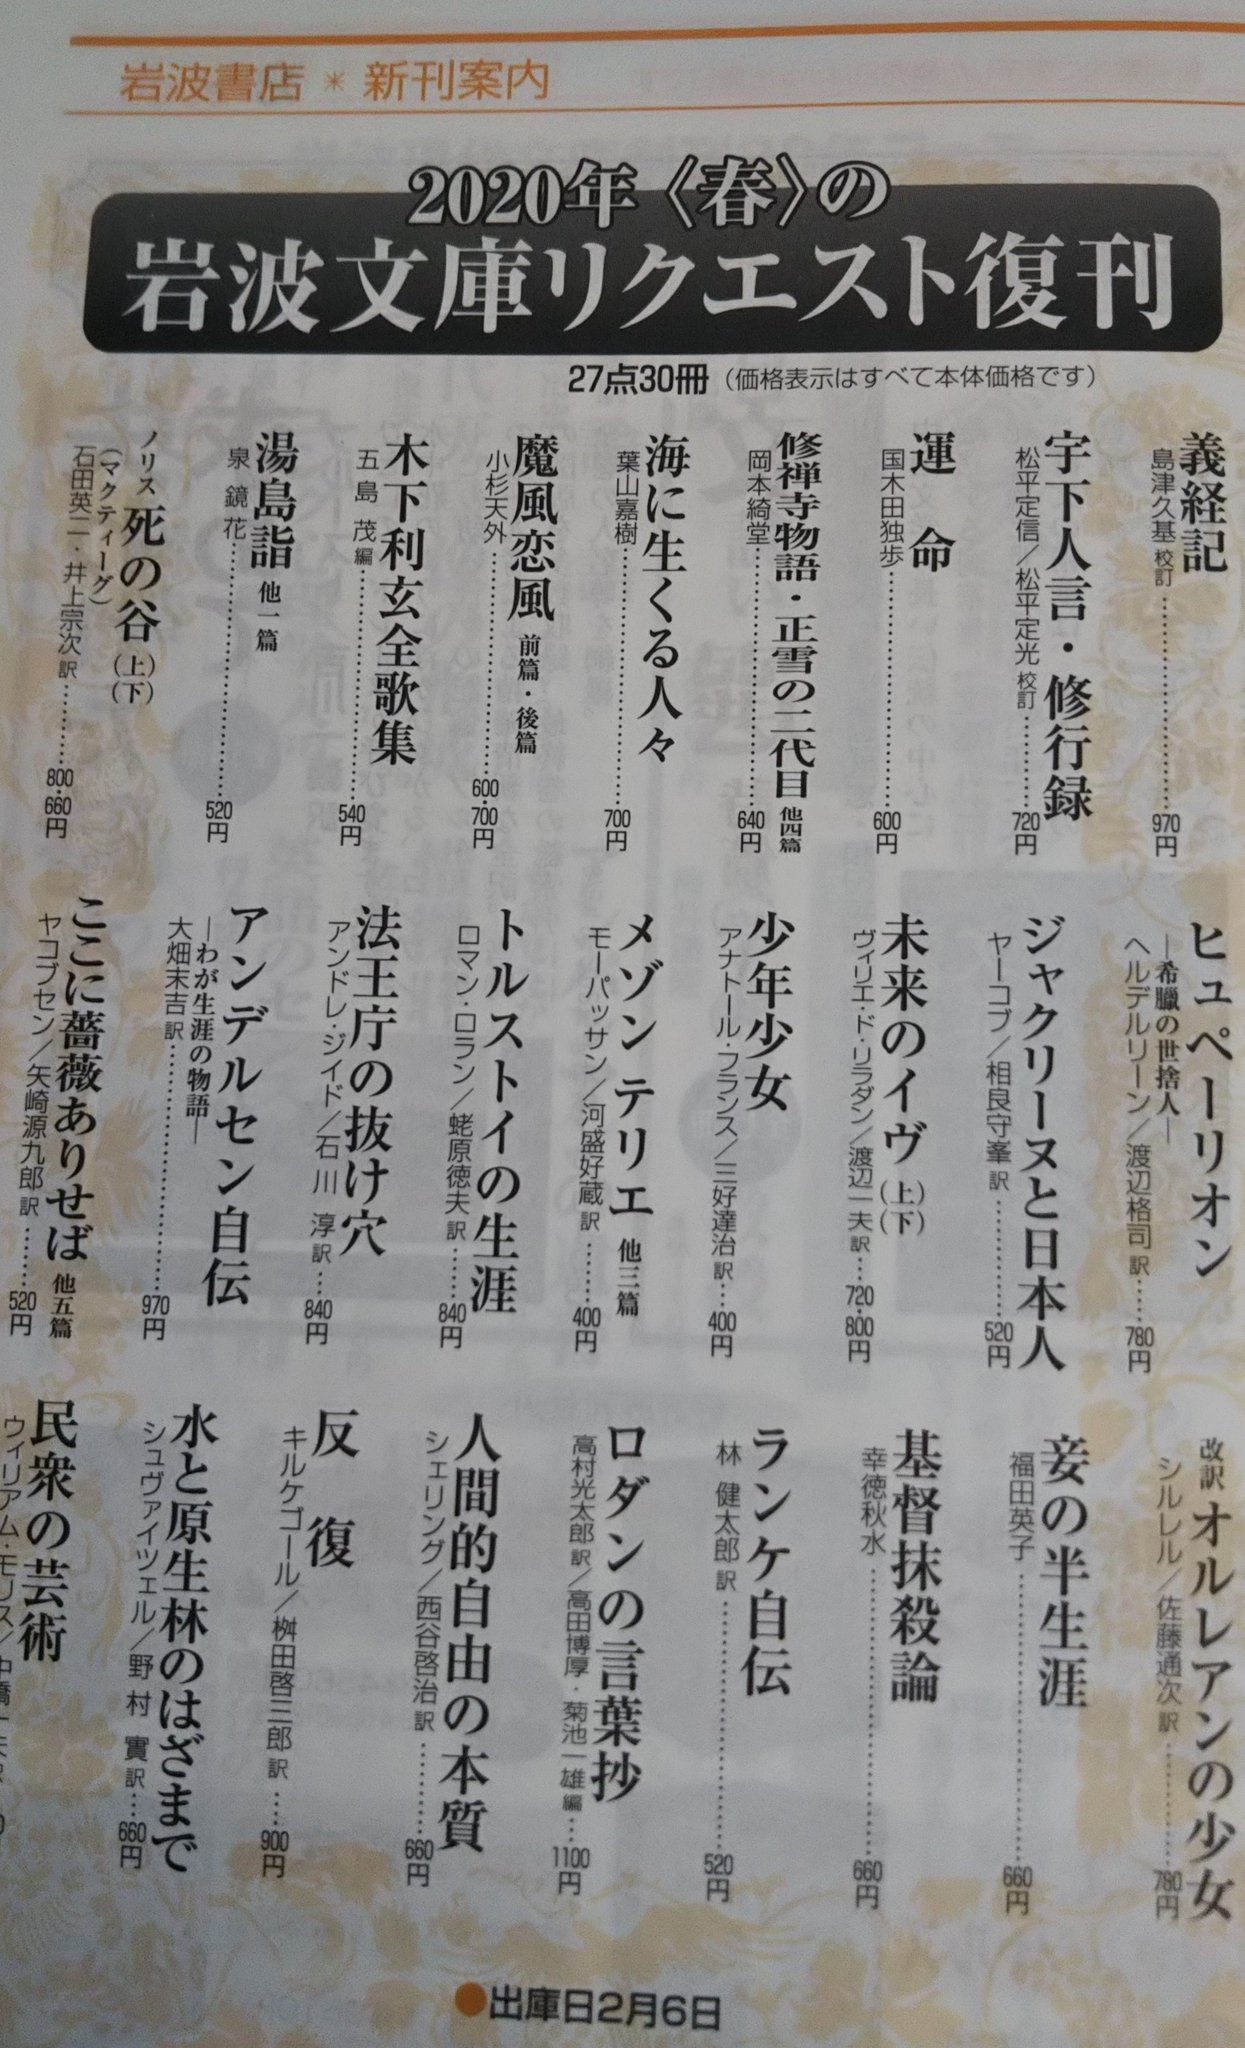 岩波書店＊新刊案内
2020年〈春〉の
岩波文庫リクエスト復刊
27点30冊（価格表示はすべて本体価格です）
義経記
島津久基 校訂……970円
宇下人言・修行録
松平定信／松平定光 校訂……720円
運命
国木田独歩……600円
修禅寺物語・正雪の二代目 他四篇
岡本綺堂……640円
海に生くる人々
葉山嘉樹……700円
魔風恋風 前篇・後篇
小杉天外……600・700円
木下利玄全歌集
五島 茂 編……540円
湯島詣 他一篇
泉 鏡花……520円
ノリス 死の谷（上）（下）
（マクティーグ）
石田英二・井上宗次 訳……800・660円
ヒュペーリオン
―希臘の世捨人―
ヘルデルリーン／渡辺格司 訳……780円
ジャクリーヌと日本人
ヤーコブ／相良守峯 訳……520円
未来のイヴ（上）（下）
ヴィリエ・ド・リラダン／渡辺一夫 訳……720・800円
少年少女
アナトール・フランス／三好達治 訳……400円
メゾンテリエ 他三篇
モーパッサン／河盛好蔵 訳……400円
トルストイの生涯
ロマン・ロラン／蛯原徳夫 訳……840円
法王庁の抜け穴
アンドレ・ジイド／石川 淳 訳……840円
アンデルセン自伝
―わが生涯の物語―
大畑末吉 訳……970円
ここに薔薇ありせば 他五篇
ヤコブセン／矢崎源九郎 訳……520円
改訳 オルレアンの少女
シルレル／佐藤通次 訳……780円
妾の半生涯
福田英子……660円
基督抹殺論
幸徳秋水……660円
ランケ自伝
林 健太郎 訳……520円
ロダンの言葉抄
高村光太郎 訳／高田博厚・菊池一雄 編……1100円
人間的自由の本質
シェリング／西谷啓治 訳……660円
反復
キルケゴール／桝田啓三郎 訳……900円
水と原生林のはざまで
シュヴァイツェル／野村 實 訳……660円
民衆の芸術
ウィリアム・モリス／
●出庫日2月6日